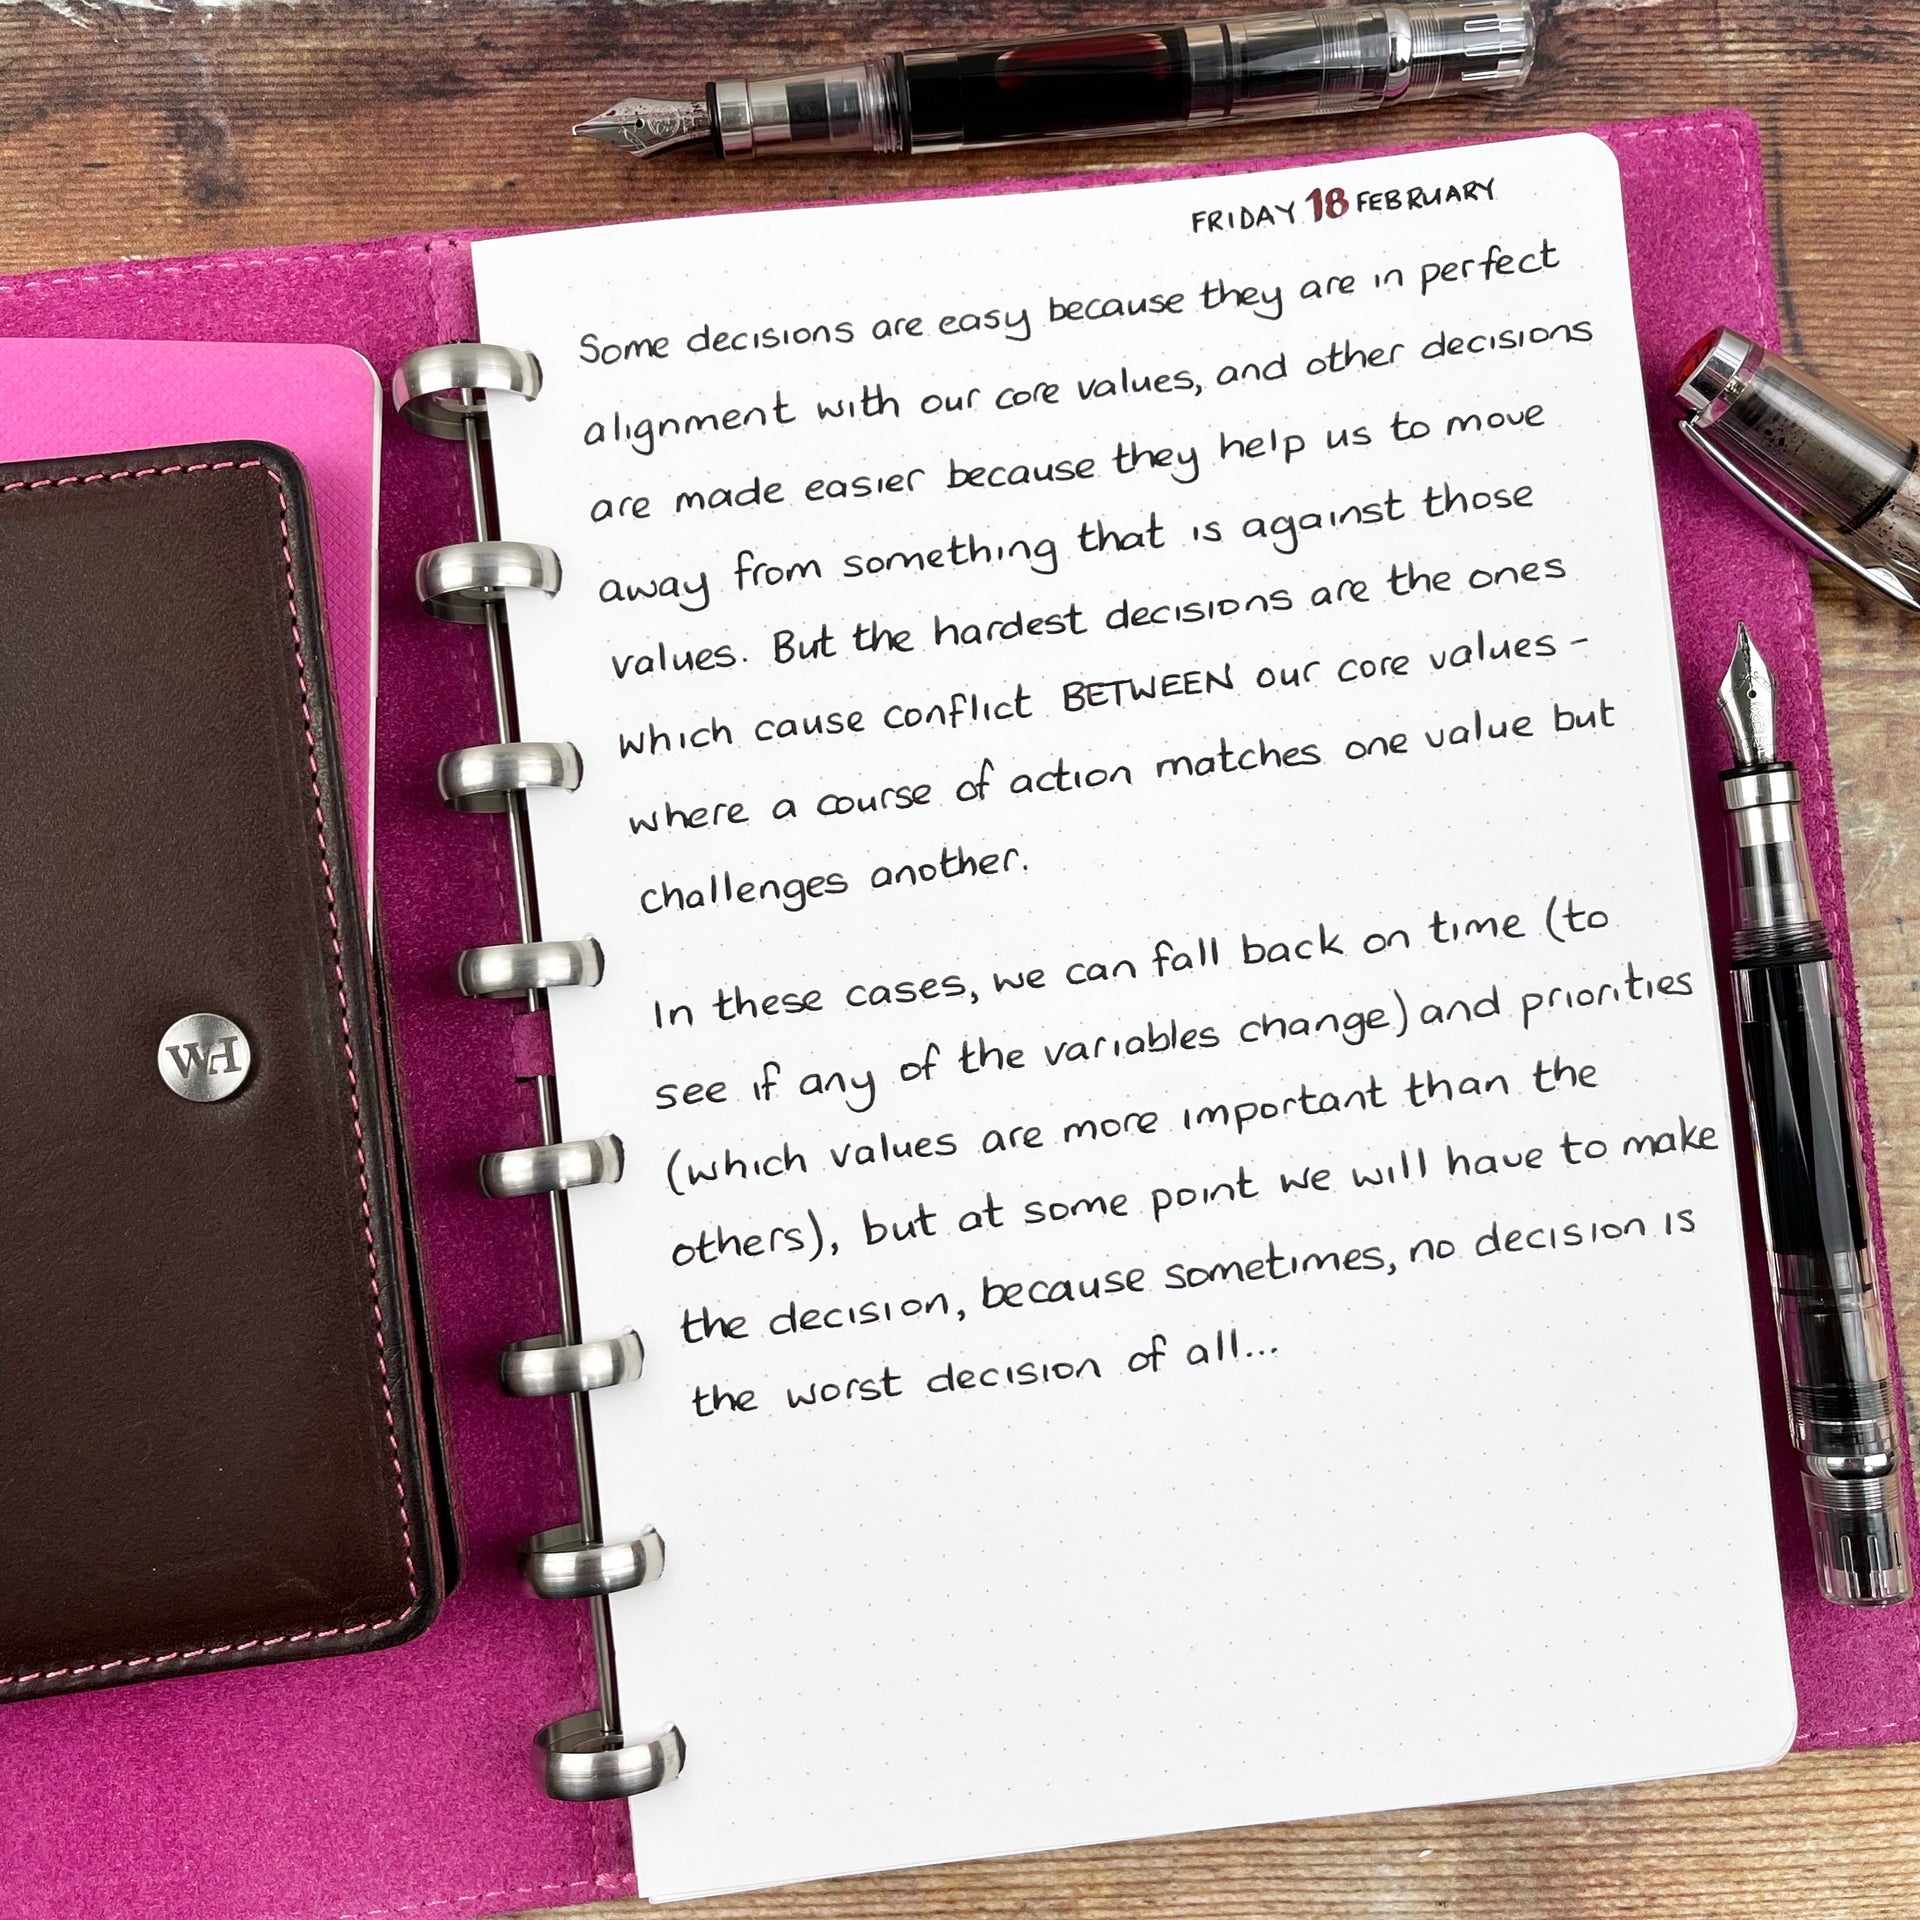 FRIDAY 18 FEBRUARY
Some decisions are easy because they are in perfect
alignment with our core values, and other decisions
are made easier because they help us to move
away from something that is against those
values. But the hardest decisions are the ones
which cause conflict BETWEEN our core values -
where a course of action matches one value but
challenges another.
In these cases, we can fall back on time (to
see if any of the variables change) and priorities
(which values are more important than the
others), but at some point we will have to make
the decision, because sometimes, no decision is
the worst decision of all...
WH